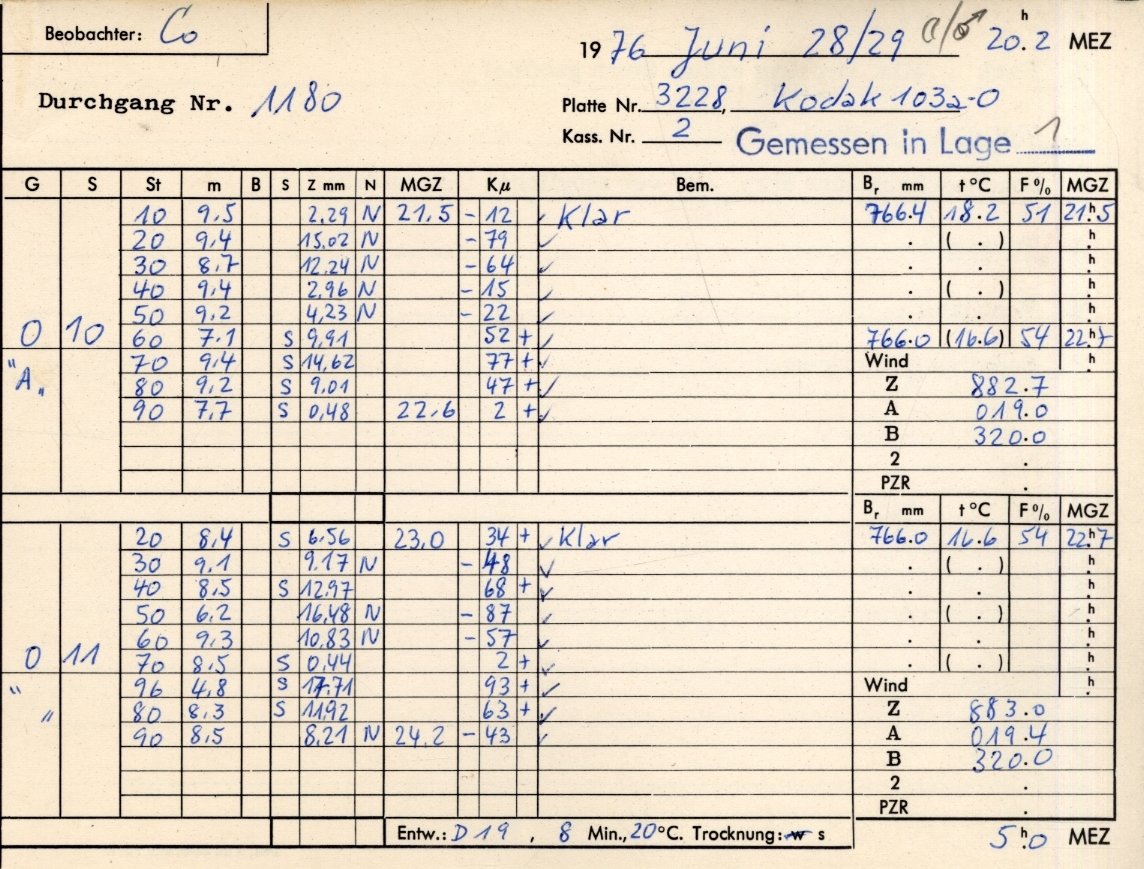 Beobachter: Co
1976 Juni 28/29 20h.2 MEZ
Durchgang Nr. 1180
Platte Nr. 3228, Kodak 103a-O
Kass. Nr. 2 Gemessen in Lage 1
G S St m B S Z mm N MGZ Kµ Bem. Br mm t °C F% MGZ
10 9.5 2,29 N 21,5 - 12 ✓ Klar 766.4 18.2 51 21h.5
20 9.4 15,02 N - 79 ✓ . ( . ) h.
30 8.7 12,24 N - 64 ✓ . . h.
40 9.4 2,96 N - 15 ✓ . ( . ) h.
50 9.2 4,23 N - 22 ✓ . . h.
0 10 60 7.1 S 9,91 52 + ✓ 766.0 (16.6) 54 22h.7
"A" 70 9.4 S 14,62 77 + ✓ Wind h.
80 9.2 S 9,01 47 + ✓ Z 882.7
90 7.7 S 0,48 22,6 2 + ✓ A 019.0
B 320.0
2 .
PZR .
Br mm t °C F% MGZ
20 8.4 S 6.56 23,0 34 + ✓ Klar 766.0 16.6 54 22h.7
30 9.1 9.17 N - 48 ✓ . ( . ) h.
40 8.5 S 12,97 68 + ✓ . . h.
50 6.2 16,48 N - 87 ✓ . ( . ) h.
60 9.3 10.83 N - 57 ✓ . . h.
0 11 70 8.5 S 0,44 2 + ✓ . ( . ) h.
" " 96 4.8 S 17.71 93 + ✓ Wind h.
80 8.3 S 11,92 63 + ✓ Z 883.0
90 8.5 8,21 N 24,2 - 43 ✓ A 019.4
B 320.0
2 .
PZR .
Entw.: D 19 , 8 Min., 20°C. Trocknung: w s
5h.0 MEZ